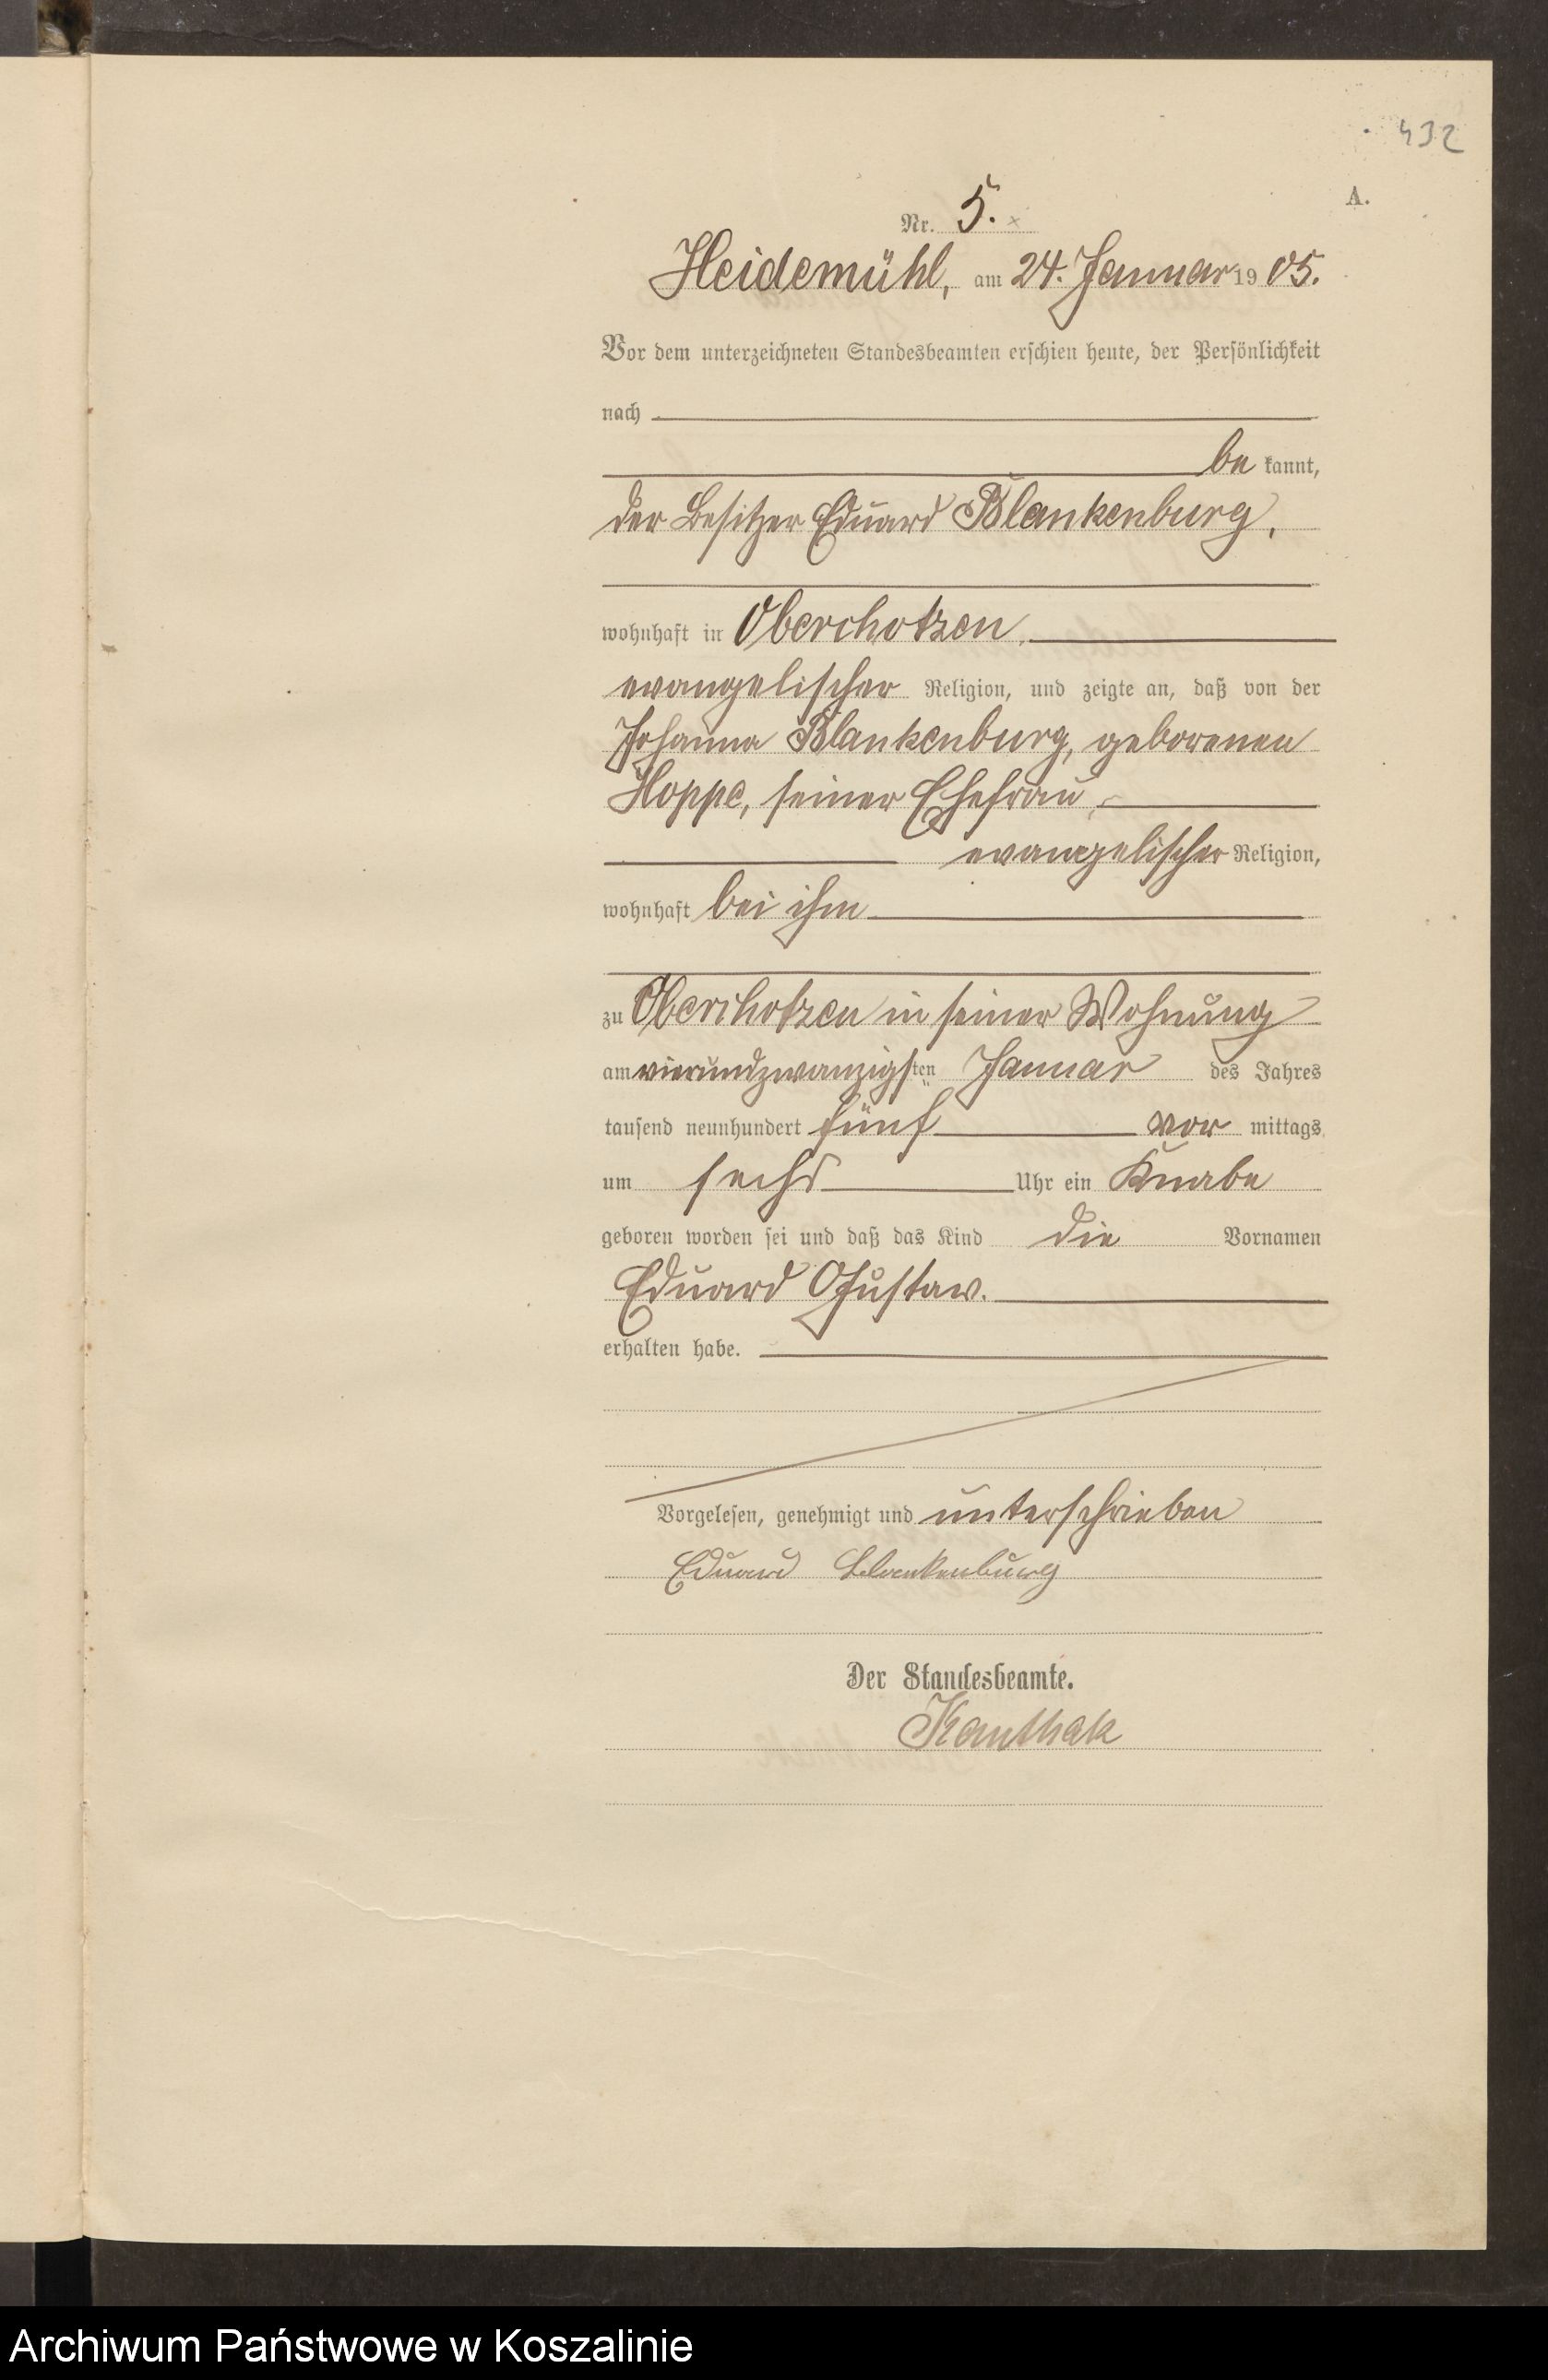 432
A.
Nr. 5.
Heidemühl, am 24. Januar 1905.
Vor dem unterzeichneten Standesbeamten erschien heute, der Persönlichkeit
nach
be kannt,
der Besitzer Eduard Blankenburg,
wohnhaft in Oberchotzen,
evangelischer Religion, und zeigte an, daß von der
Johanna Blankenburg, geborenen
Hoppe, seiner Ehefrau,
evangelischer Religion,
wohnhaft bei ihm
zu Oberchotzen in seiner Wohnung
am vierundzwanzigsten Januar des Jahres
tausend neunhundert fünf vor mittags
um sechs Uhr ein Knabe
geboren worden sei und daß das Kind die Vornamen
Eduard Gustav.
erhalten habe.
Vorgelesen, genehmigt und unterschrieben
Eduard Blankenburg
Der Standesbeamte.
Kauthak
Archiwum Państwowe w Koszalinie